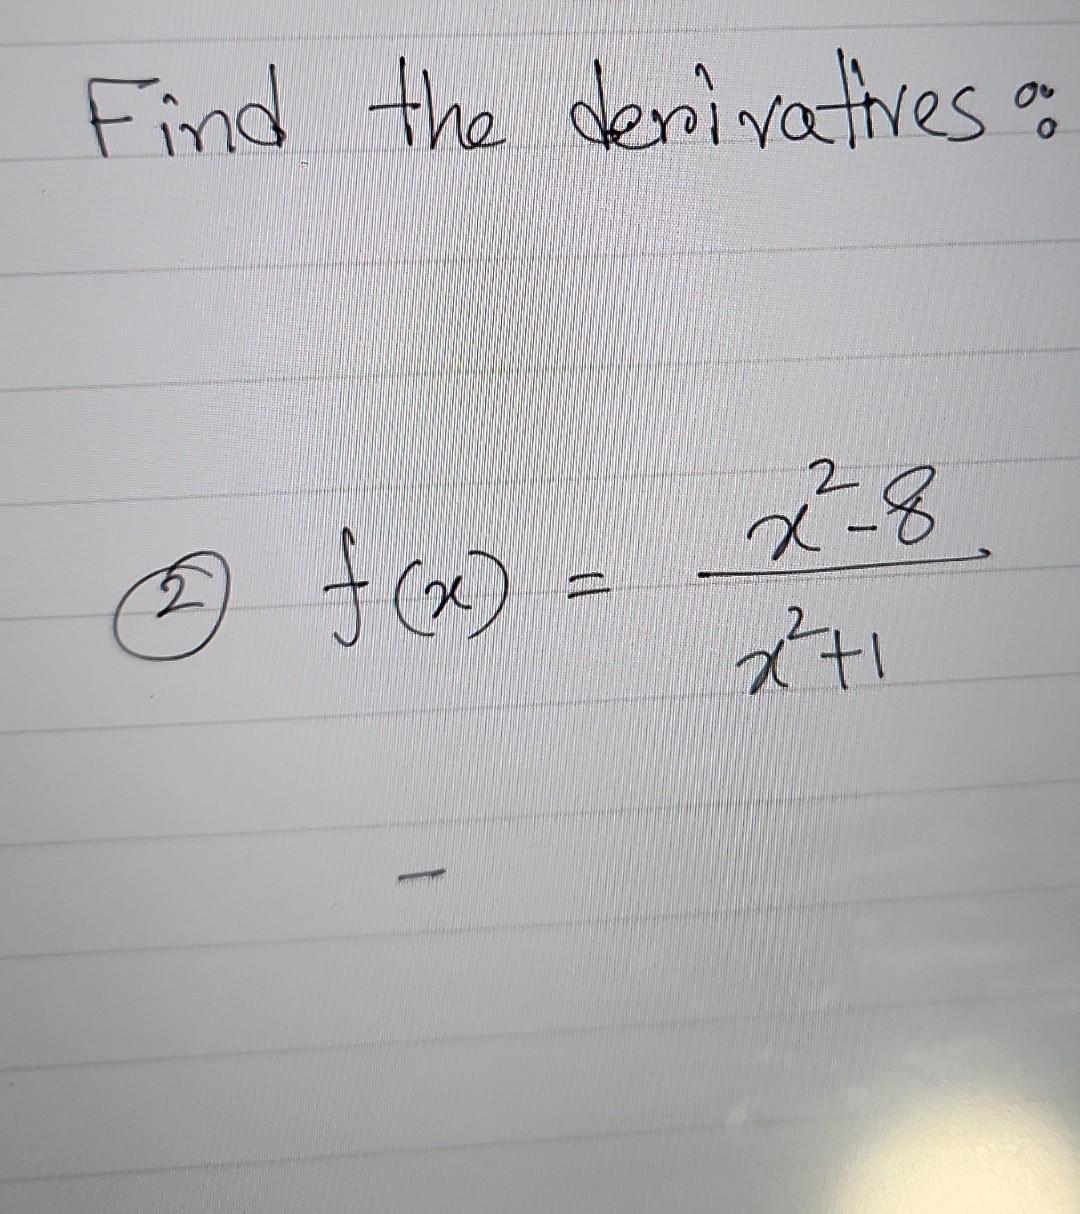 Find the derivatives :
② f(x) = x²-8 / x²+1